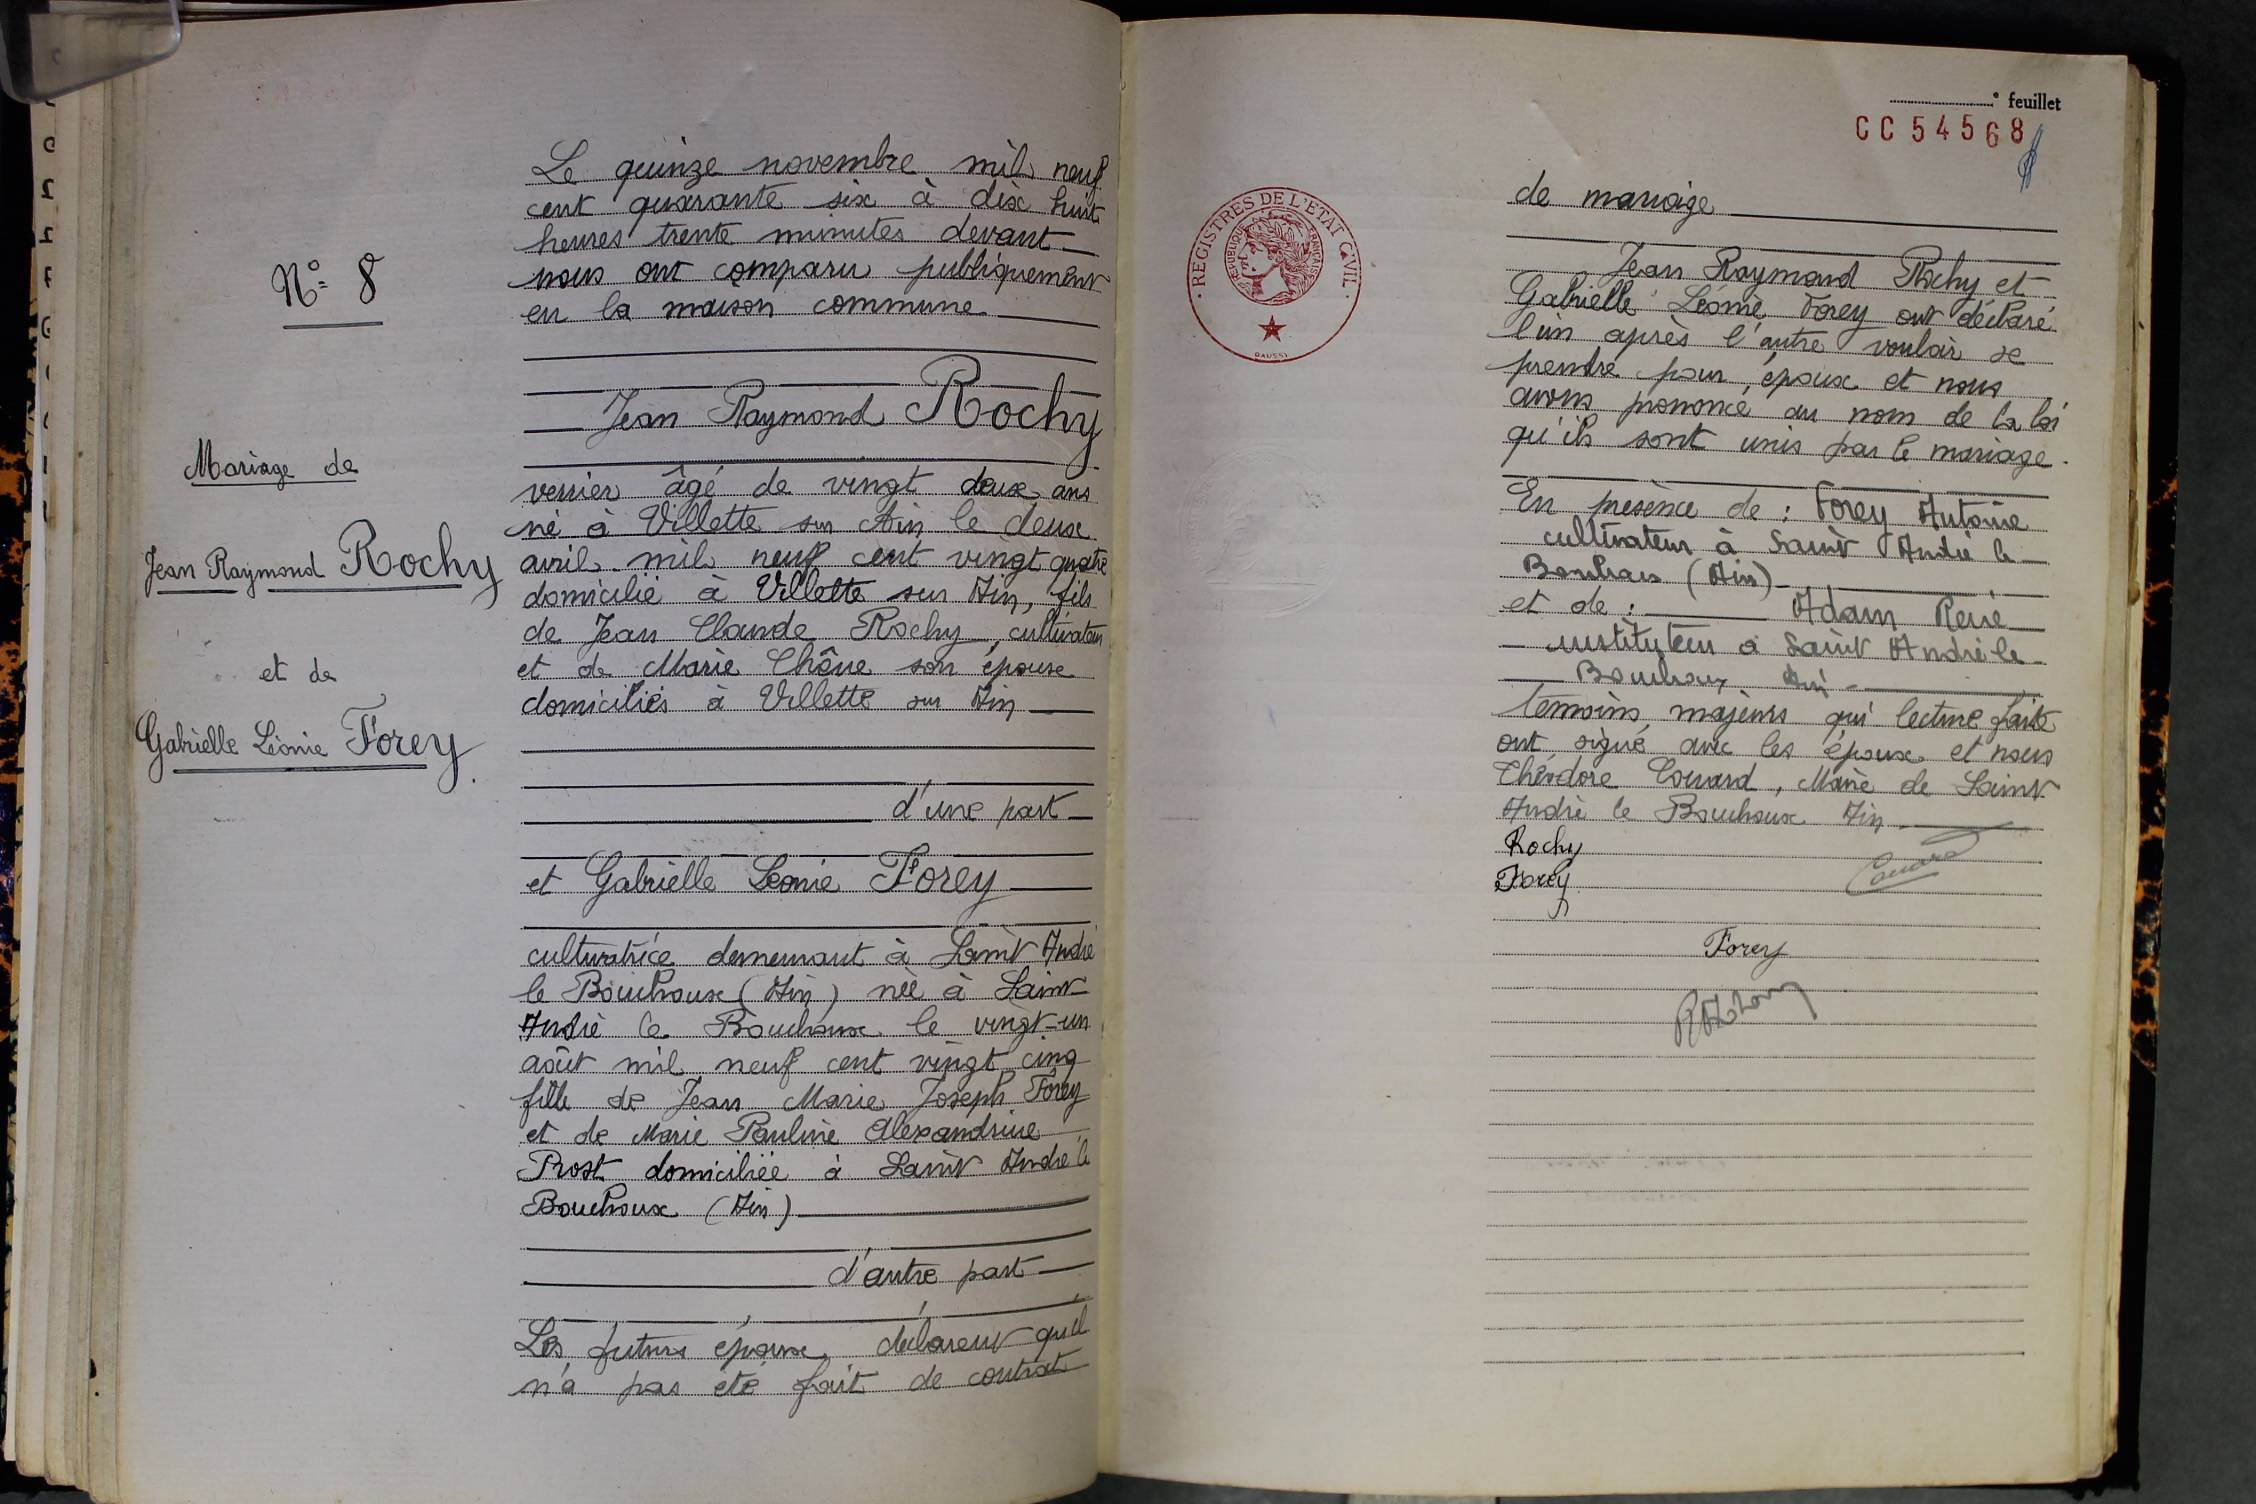 N° 8
Mariage de
Jean Raymond Rochy
et de
Gabrielle Léonie Forey
Le quinze novembre mil neuf
cent quarante six à dix huit
heures trente minutes devant
nous ont comparu publiquement
en la maison commune
Jean Raymond Rochy
verrier âgé de vingt deux ans
né à Villette sur Ain le deux
avril mil neuf cent vingt quatre
domicilié à Villette sur Ain, fils
de Jean Claude Rochy, cultivateur
et de Marie Chêne son épouse
domiciliés à Villette sur Ain
d'une part
et Gabrielle Léonie Forey
cultivatrice demeurant à Saint André
le Bouchoux (Ain) née à Saint
André le Bouchoux le vingt-un
août mil neuf cent vingt cinq
fille de Jean Marie Joseph Forey
et de Marie Pauline Alexandrine
Prost domiciliée à Saint André le
Bouchoux (Ain)
d'autre part
Les futurs époux déclarent qu'il
n'a pas été fait de contrat
° feuillet
CC 54568
REGISTRES DE L'ETAT CIVIL
REPUBLIQUE FRANÇAISE
DAUSSY
de mariage
Jean Raymond Rochy et
Gabrielle Léonie Forey ont déclaré
l'un après l'autre vouloir se
prendre pour époux et nous
avons prononcé au nom de la loi
qu'ils sont unis par le mariage.
En présence de : Forey Antoine
cultivateur à Saint André le
Bouchoux (Ain)
et de : Adam René
instituteur à Saint André le
Bouchoux Ain
témoins majeurs qui lecture faite
ont signé avec les époux et nous
Théodore Couard, Maire de Saint
André le Bouchoux Ain
Rochy
Couard
Forey
Forey